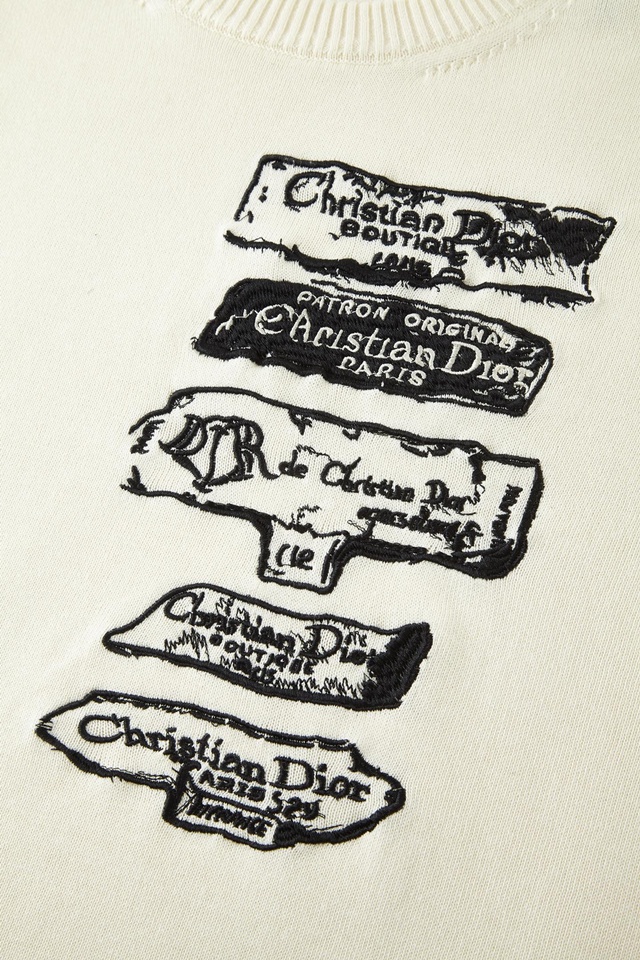 Christian Dior
BOUTIQUE
PATRON ORIGINAL
Christian Dior
PARIS
DIOR de Christian Dior
Christian Dior
BOUTIQUE
Christian Dior
PARIS